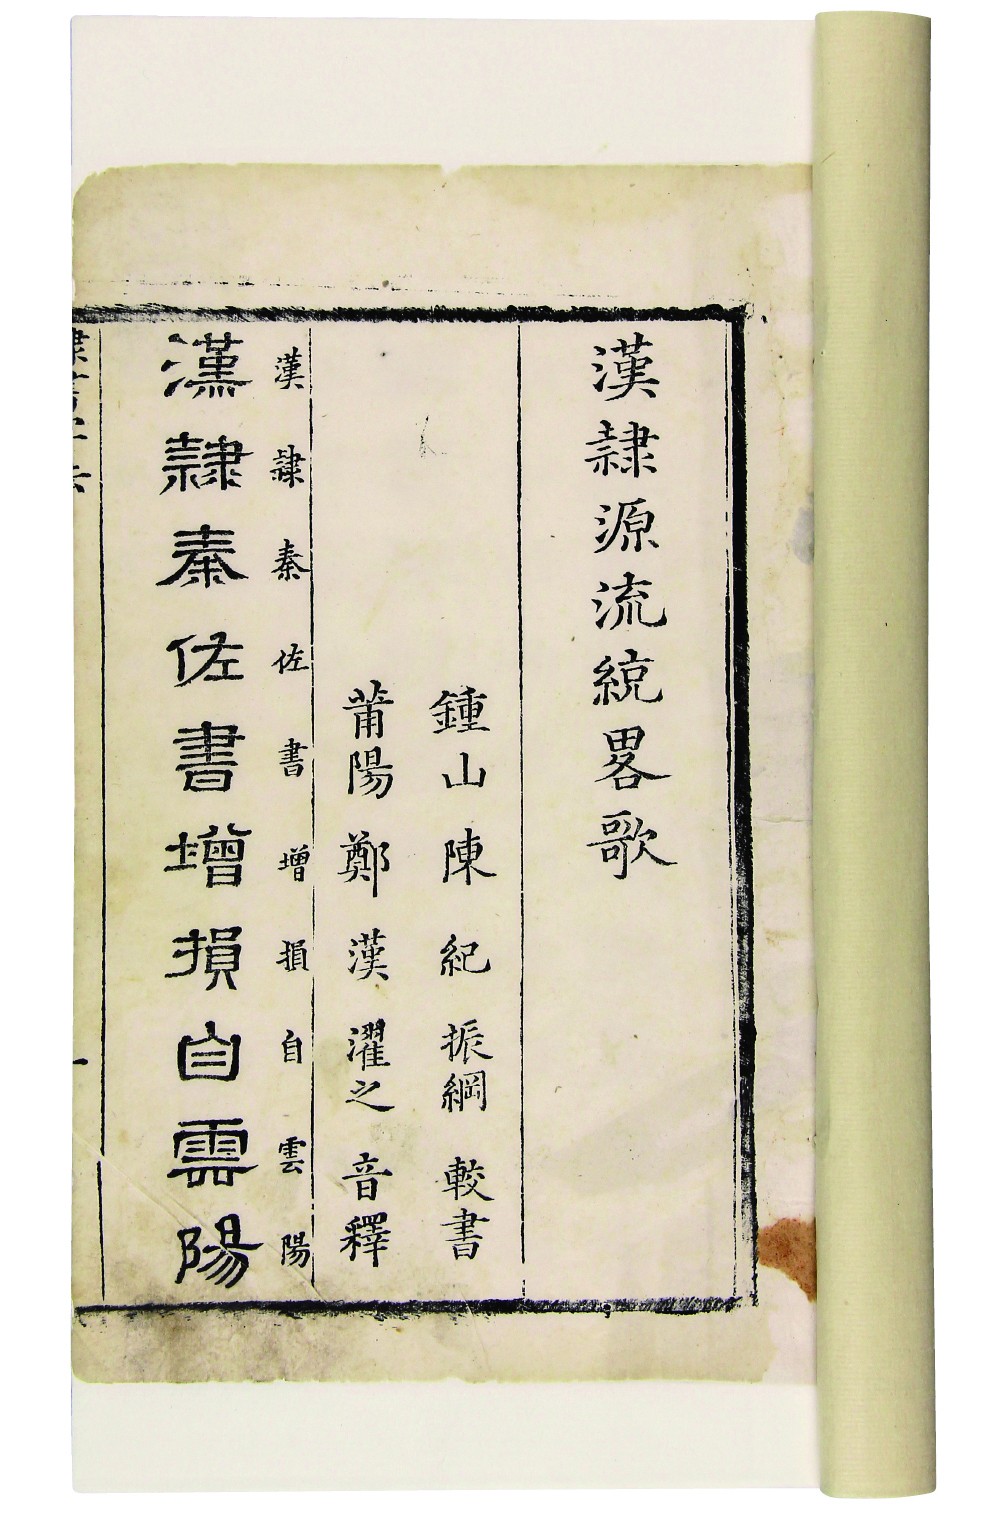 漢隸源流統畧歌
鍾山陳紀振綱較書
莆陽鄭漢濯之音釋
漢隸秦佐書增損自雲陽
漢隸秦佐書增損自雲陽
一